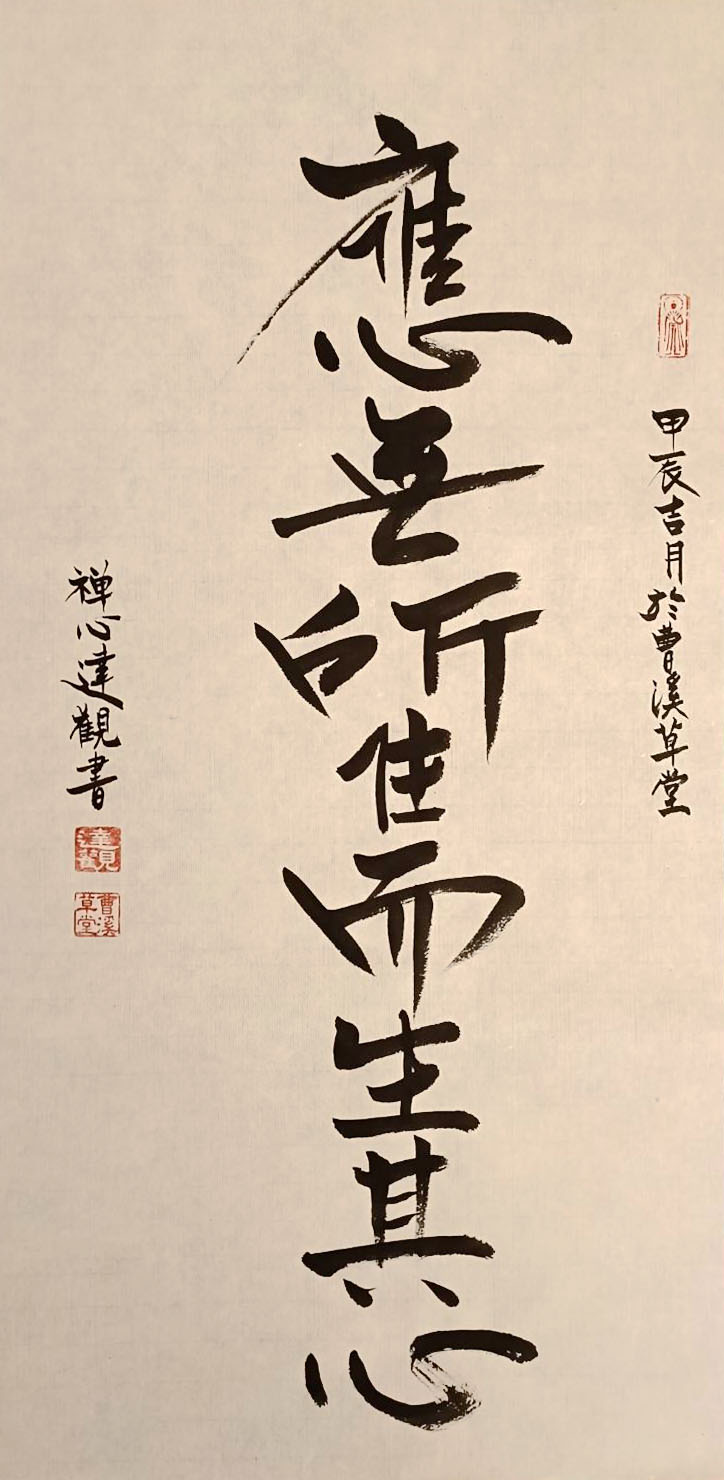 甲辰吉月於曹溪草堂
應無所住而生其心
禅心達觀書
達觀
曹溪草堂